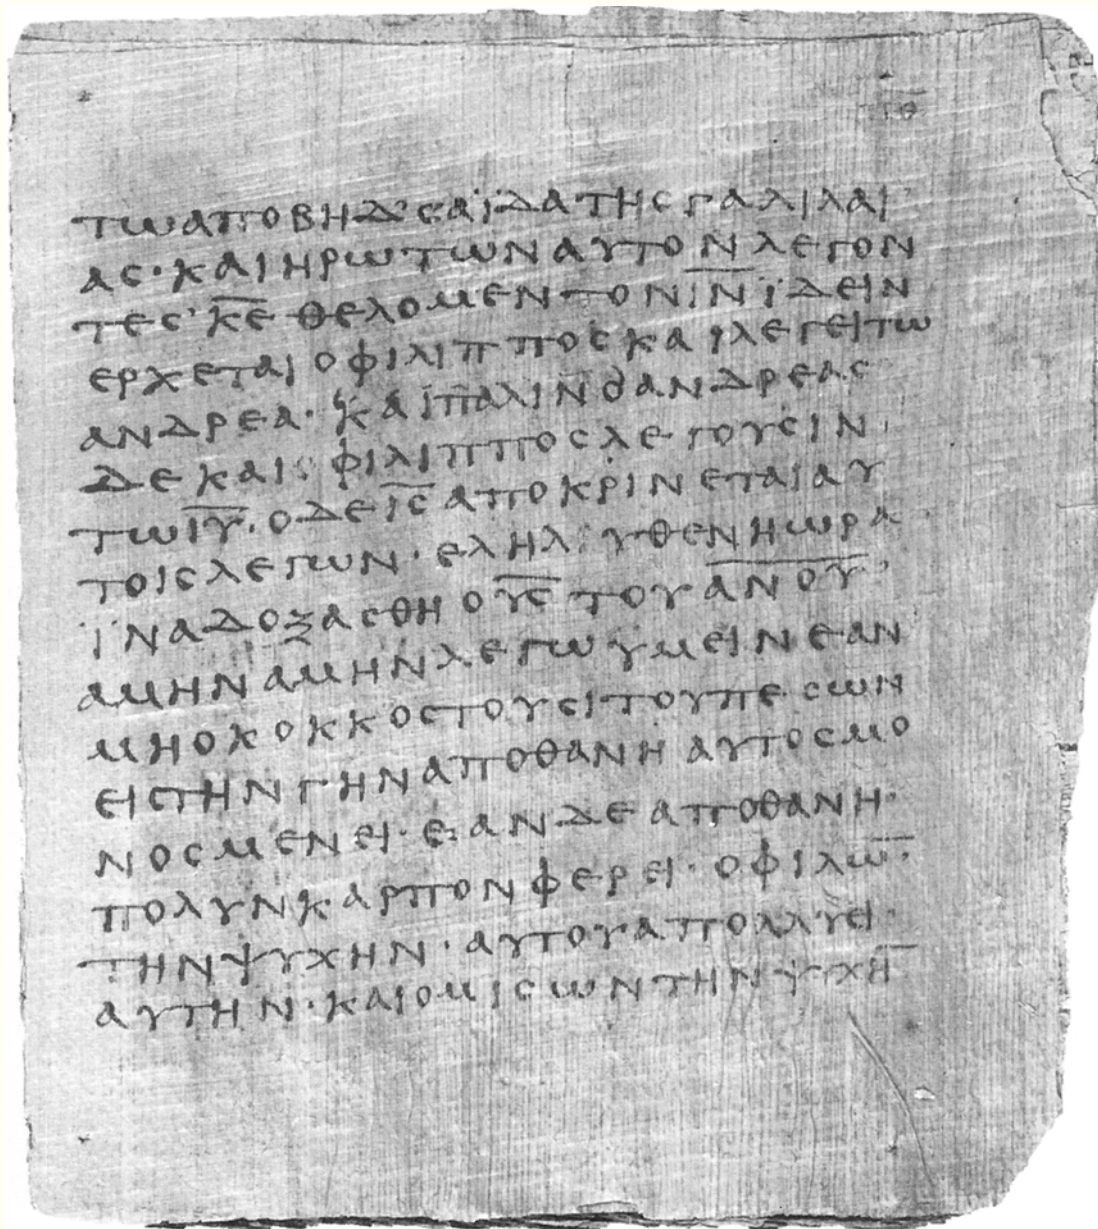 ΤΩΑΠΟΒΗΔ'ϹΑΪΔΑΤΗϹΓΑΛΙΛΑΙ
ΑϹ·ΚΑΙΗΡΩΤΩΝΑΥΤΟΝΛΕΓΟΝ
ΤΕϹ'Κ̅Ε̅ΘΕΛΟΜΕΝΤΟΝΙ̅Ν̅ΪΔΕΙΝ
ΕΡΧΕΤΑΙΟΦΙΛΙΠΠΟϹΚΑΙΛΕΓΕΙΤΩ
ΑΝΔΡΕΑ·ΚΑΙΠΑΛΙΝΟΑΝΔΡΕΑϹ
ΔΕΚΑΙΦΙΛΙΠΠΟϹΛΕΓΟΥϹΙΝ
ΤΩΙ̅Υ̅·ΟΔΕΙ̅Ϲ̅ΑΠΟΚΡΙΝΕΤΑΙΑΥ
ΤΟΙϹΛΕΓΩΝ·ΕΛΗΛΥΘΕΝΗΩΡΑ
ΪΝΑΔΟΞΑϹΘΗΟΥ̅Ϲ̅ΤΟΥΑ̅Ν̅Ο̅Υ̅
ΑΜΗΝΑΜΗΝΛΕΓΩΥΜΕΙΝΕΑΝ
ΜΗΟΚΟΚΚΟϹΤΟΥϹΙΤΟΥΠΕϹΩΝ
ΕΙϹΤΗΝΓΗΝΑΠΟΘΑΝΗΑΥΤΟϹΜΟ
ΝΟϹΜΕΝΕΙ·ΕΑΝΔΕΑΠΟΘΑΝΗ·
ΠΟΛΥΝΚΑΡΠΟΝΦΕΡΕΙ·ΟΦΙΛΩ̅·
ΤΗΝΨΥΧΗΝ·ΑΥΤΟΥΑΠΟΛΛΥΕΙ·
ΑΥΤΗΝ·ΚΑΙΟΜΙϹΩΝΤΗΝΨΥΧΗ̅